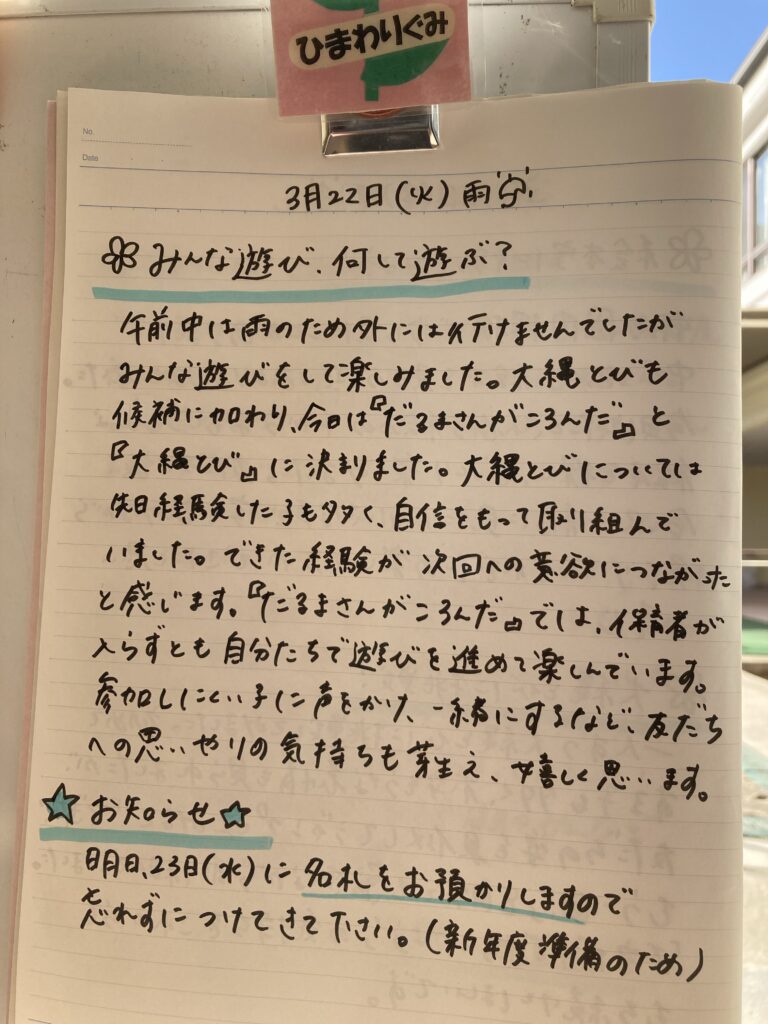 ひまわりぐみ
No.
Date
3月22日(火) 雨
みんな遊び、何して遊ぶ?
午前中は雨のため外には行けませんでしたが
みんな遊びをして楽しみました。大縄とびも
候補に加わり、今日は『だるまさんがころんだ』と
『大縄とび』に決まりました。大縄とびについては
先日経験した子も多く、自信をもって取り組んで
いました。できた経験が次回への意欲につながった
と感じます。『だるまさんがころんだ』では、保育者が
入らずとも自分たちで遊びを進めて楽しんでいます。
参加しにくい子に声をかけ、一緒にするなど、友だち
への思いやりの気持ちも芽生え、嬉しく思います。
☆お知らせ☆
明日、23日(水)に名札をお預かりしますので
忘れずにつけてきて下さい。(新年度準備のため)